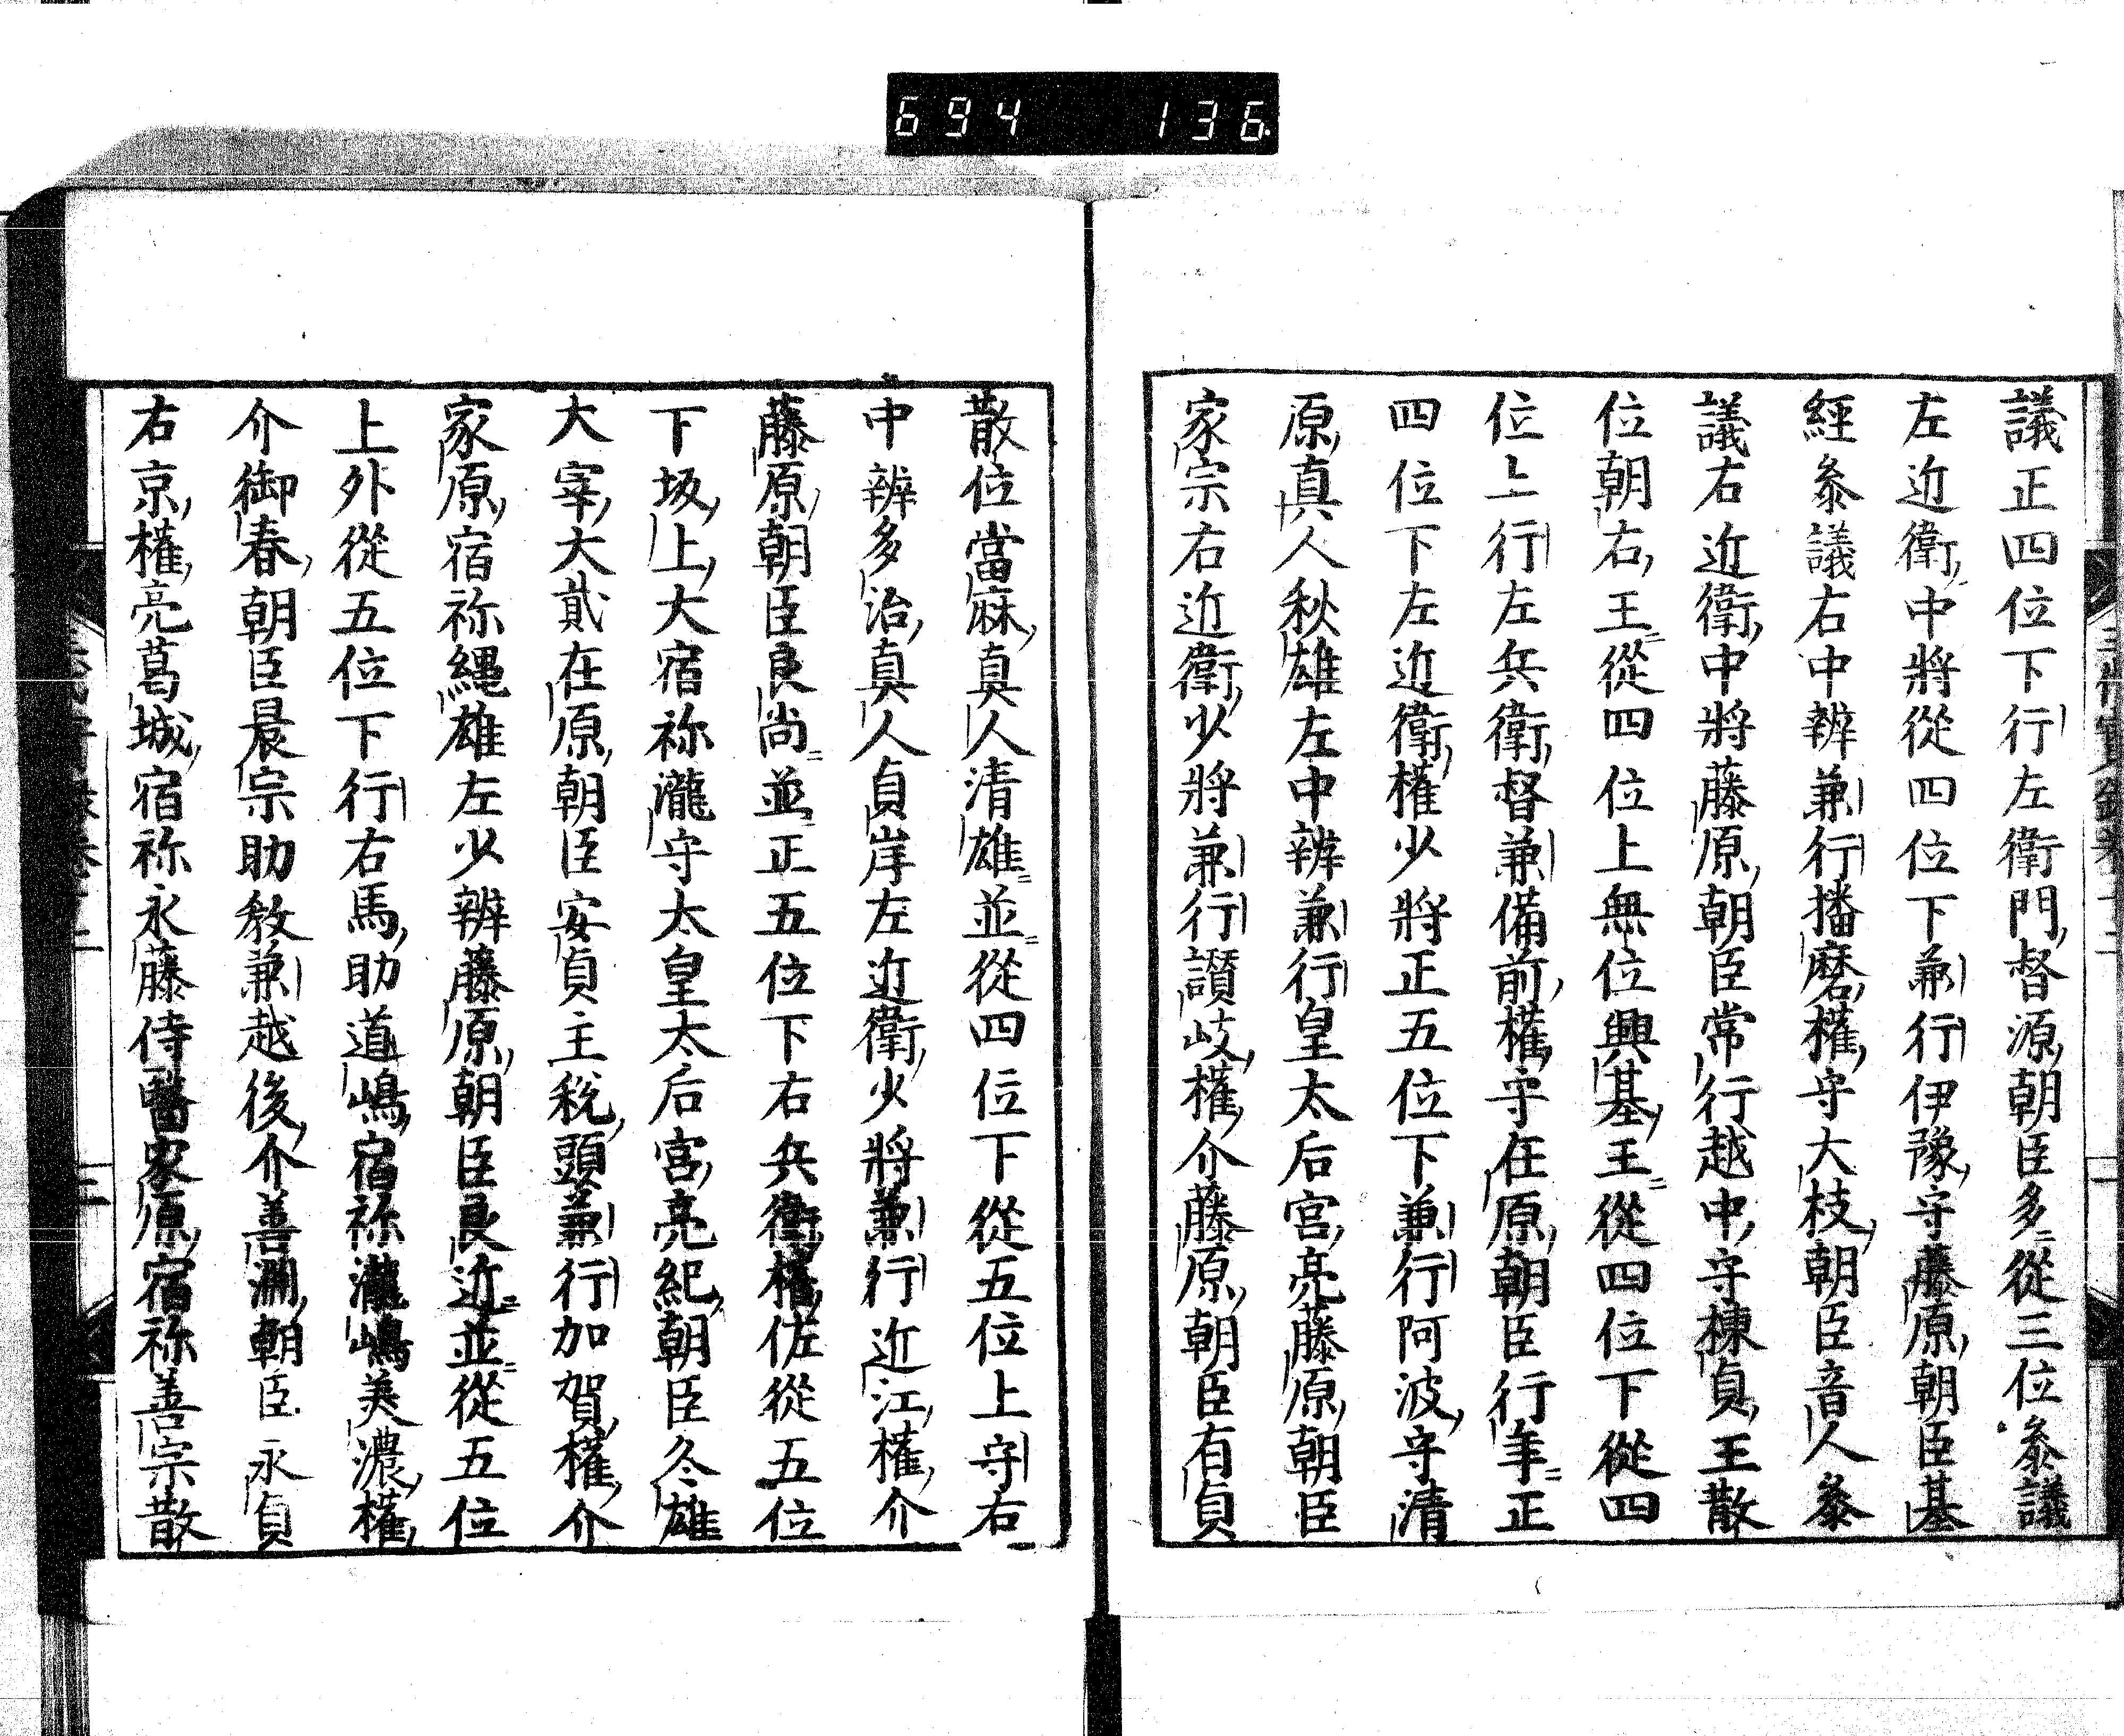 694 136
議正四位下行左衛門督源朝臣多從三位參議
左近衛中將從四位下兼行伊豫守藤原朝臣基
經參議右中辨兼行播磨權守大枝朝臣音人參
議右近衛中將藤原朝臣常行越中守棟貞王散
位朝右王從四位上無位興基王從四位下從四
位上行左兵衛督兼備前權守在原朝臣行年正
四位下左近衛權少將正五位下兼行阿波守清
原真人秋雄左中辨兼行皇太后宮亮藤原朝臣
家宗右近衛少將兼行讚岐權介藤原朝臣有貞
散位當麻真人清雄並從四位下從五位上守右
中辨多治真人貞岑左近衛少將兼行近江權介
藤原朝臣良尚並正五位下右兵衛權佐從五位
下坂上大宿祢瀧守太皇太后宮亮紀朝臣冬雄
大宰大貳在原朝臣安貞主稅頭兼行加賀權介
家原宿祢繩雄左少辨藤原朝臣良近並從五位
上外從五位下行右馬助道嶋宿祢瀧嶋美濃權
介御春朝臣晨宗助教兼越後介善淵朝臣永貞
右京權亮葛城宿祢永藤侍醫家原宿祢善宗散